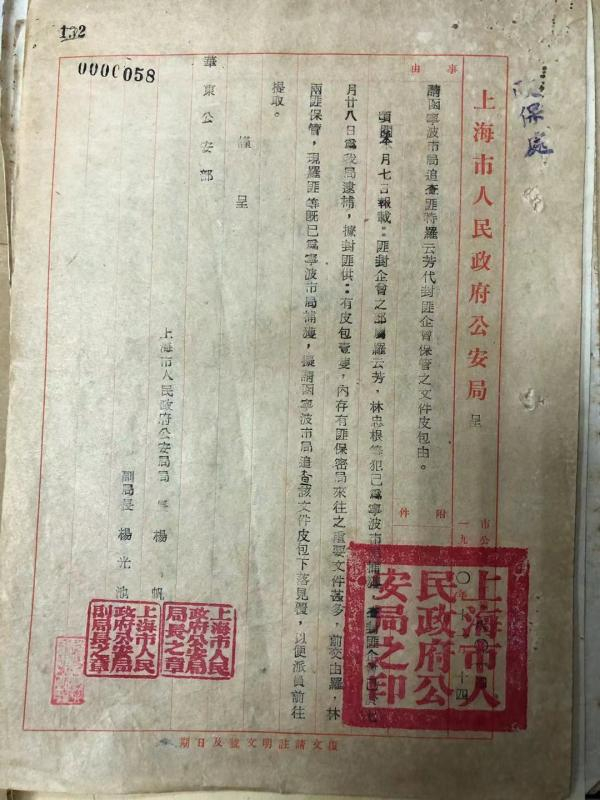 132
0000058
保處
上海市人民政府公安局 呈
事由
請函寧波市局追查匪特羅云芳代封匪企曾保管之文件皮包由。
附件
頃閱本月七日報載：匪封企曾之部屬羅云芳，林忠根等犯已爲寧波市
月廿八日爲我局逮捕，據封匪供：有皮包壹隻，內存有匪保密局來往之重要文件甚多，前交由羅，林
兩匪保管，現羅匪等既已爲寧波市局捕獲，擬請函寧波市局追查該文件皮包下落見覆，以便派員前往
提取。
謹呈
華東公安部
上海市人民政府公安局局長 楊帆
副局長 楊光池
上海市人民政府公安局之印
上海市人民政府公安局局長之章
上海市人民政府公安局副局長之章
復文請註明文號及日期